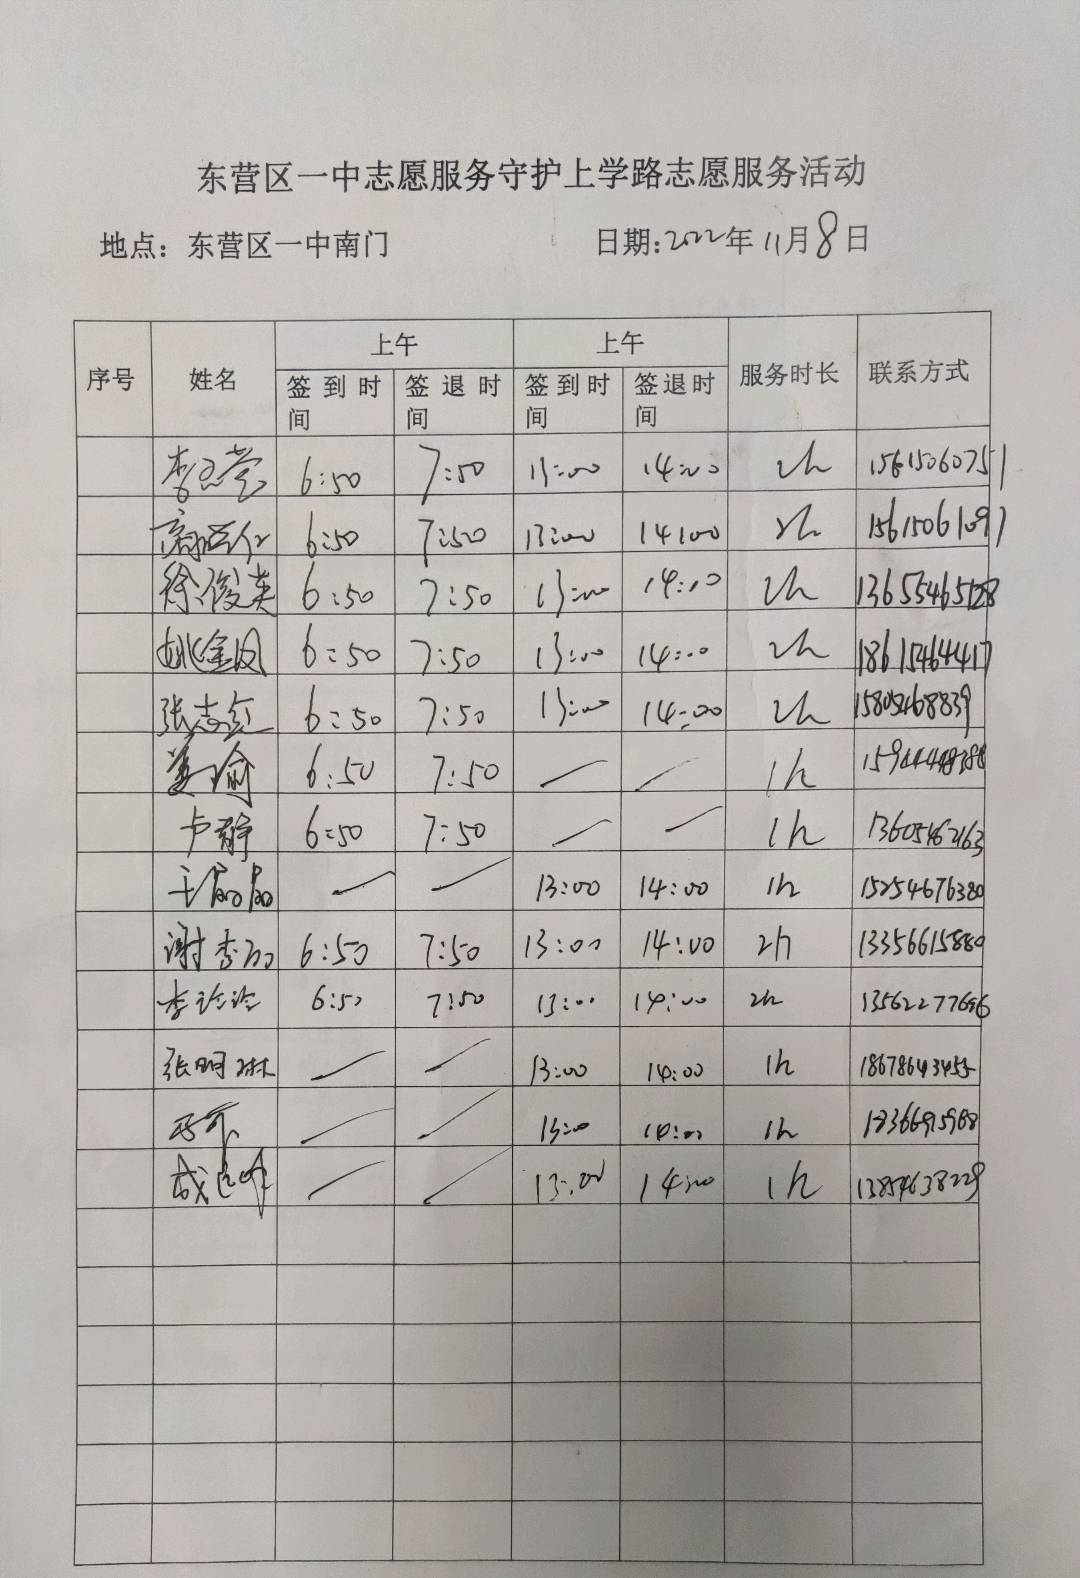 东营区一中志愿服务守护上学路志愿服务活动
地点：东营区一中南门 日期:2022年11月8日
序号 姓名 上午 上午 服务时长 联系方式
签到时间 签退时间 签到时间 签退时间
6:50 7:50 13:00 14:00 2h 15615060751
6:50 7:50 13:00 14:00 2h 15615061097
徐俊英 6:50 7:50 13:00 14:10 2h 13655465128
姚金凤 6:50 7:50 13:00 14:00 2h 18615464417
张志红 6:50 7:50 13:00 14:00 2h 15805468839
姜瑜 6:50 7:50 — — 1h
卢静 6:50 7:50 — — 1h 13605462163
王晶晶 — — 13:00 14:00 1h 15254676380
谢李 6:50 7:50 13:00 14:00 2h 13356615880
李玲玲 6:50 7:50 13:00 14:00 2h 13562277696
张明琳 — — 13:00 14:00 1h 18678643455
— — 13:00 14:00 1h 18366915988
— — 13:00 14:00 1h 13854638229